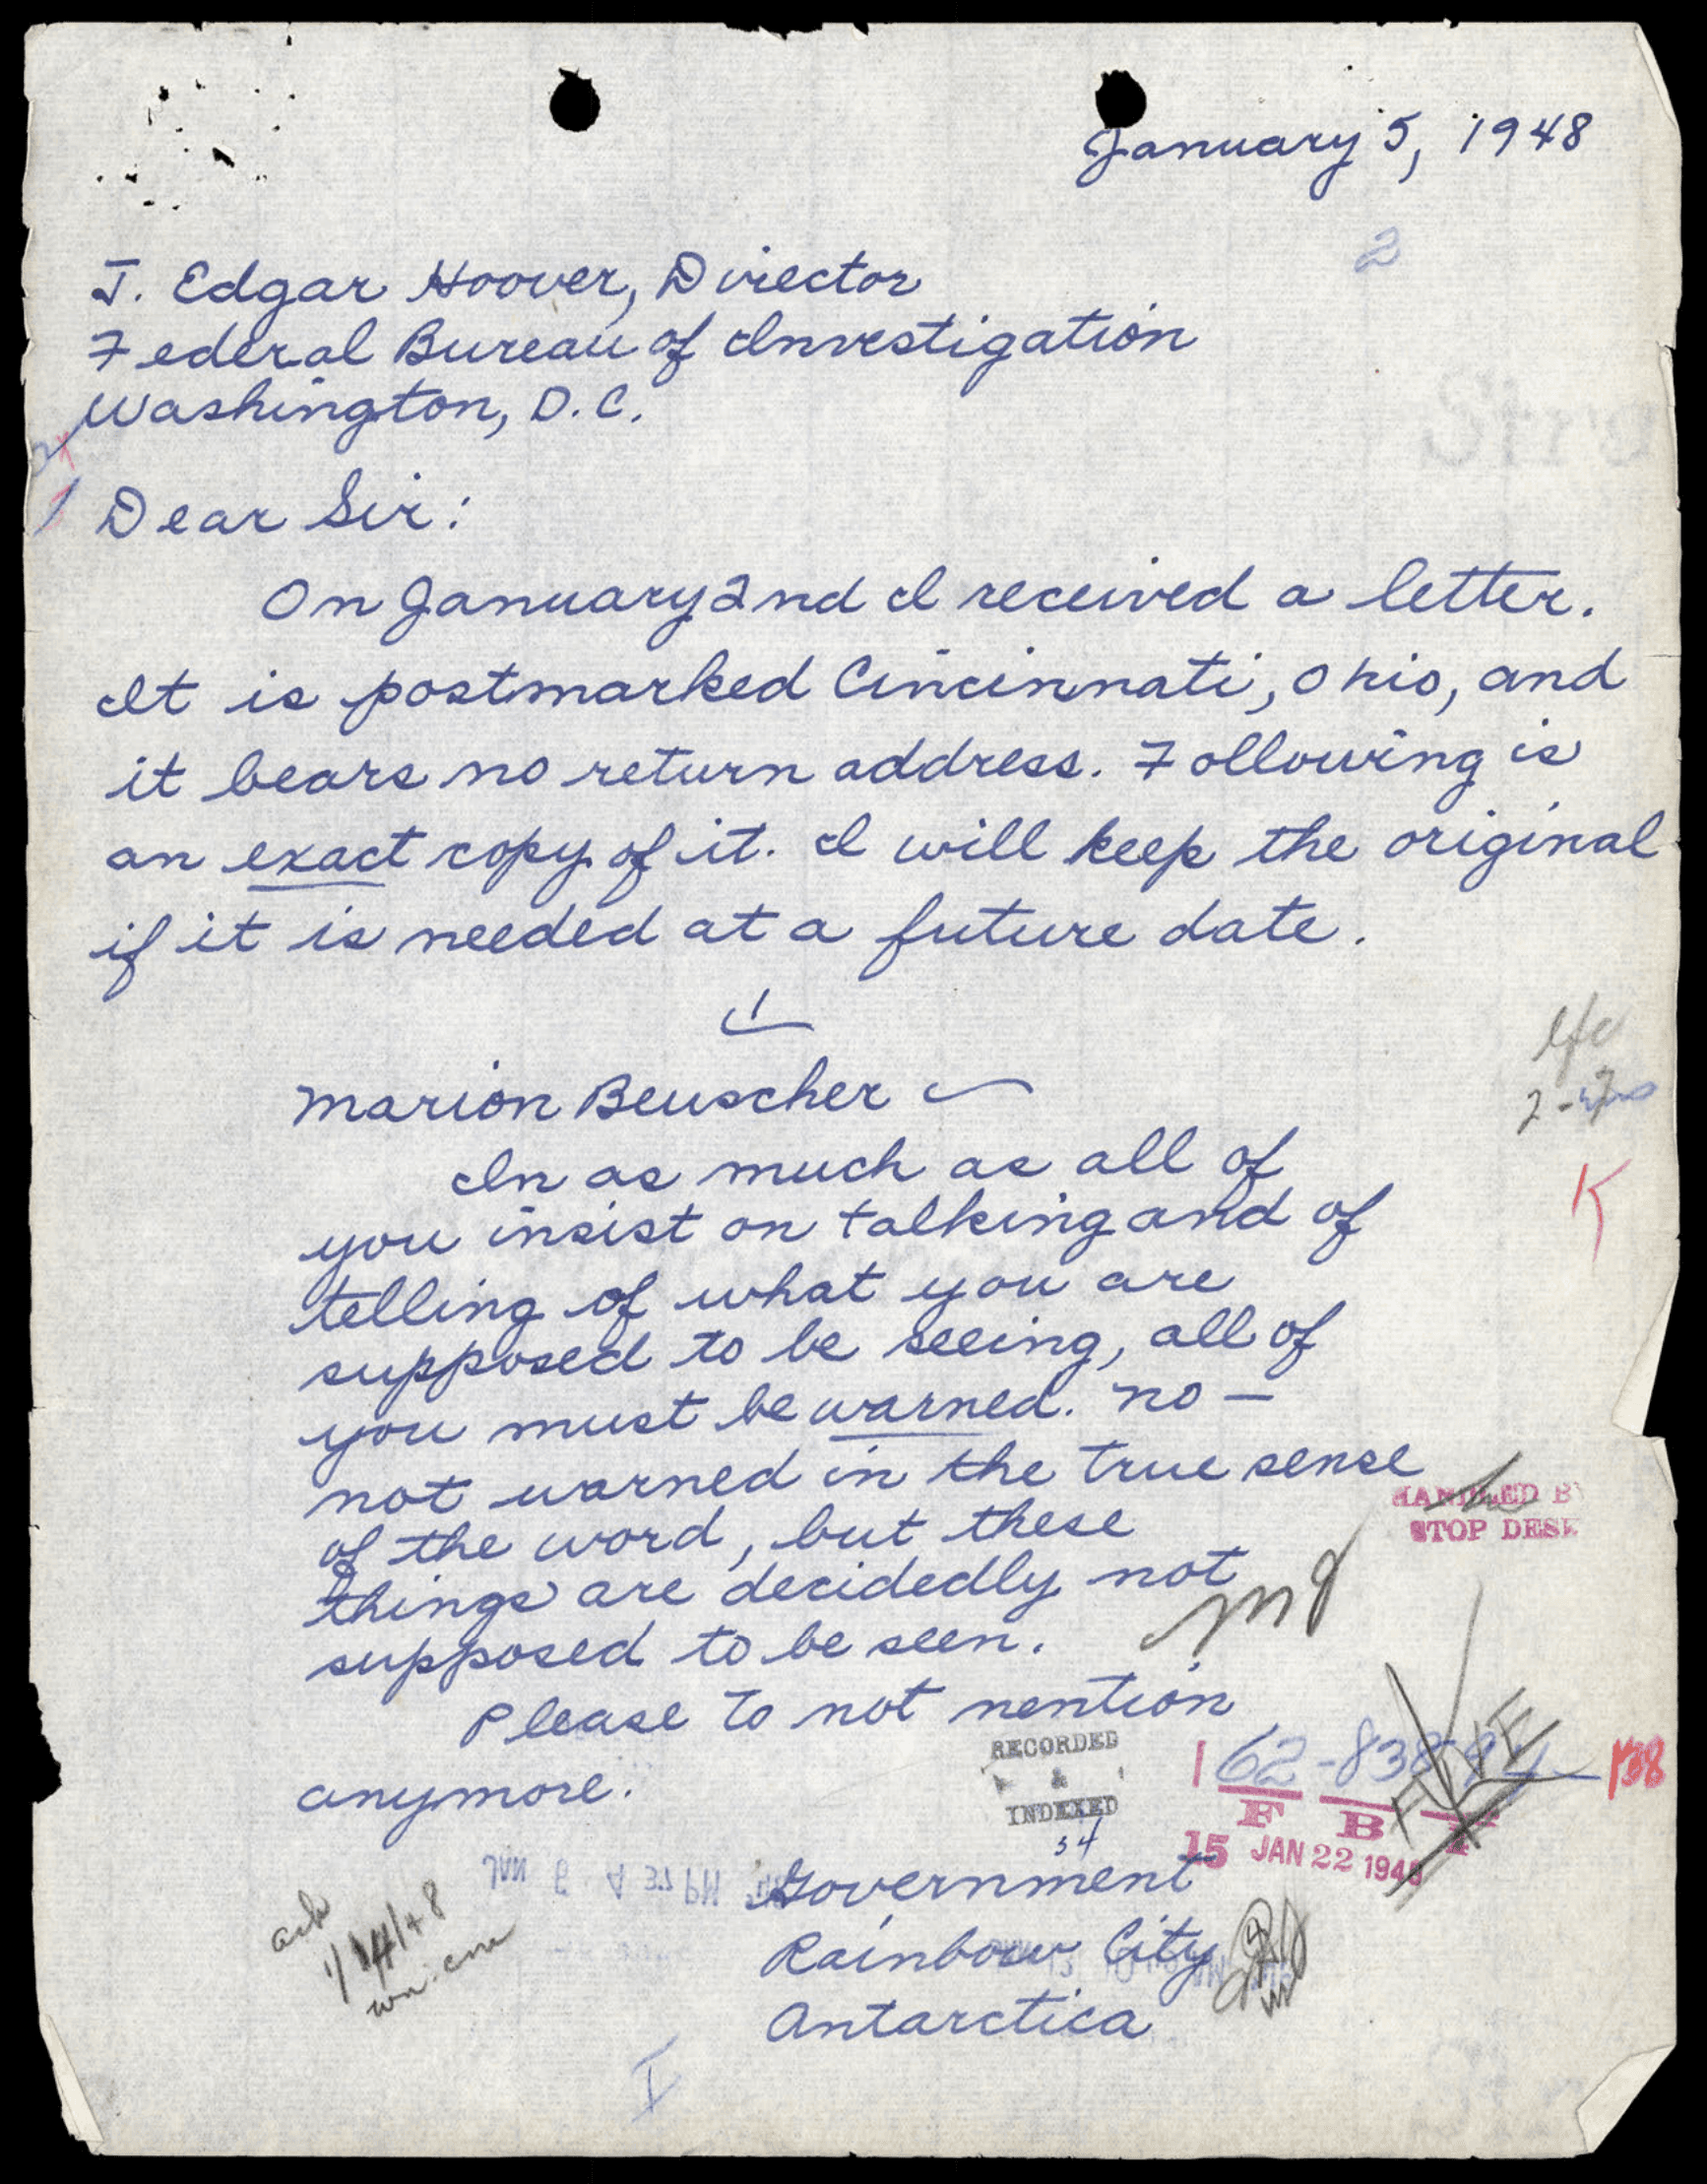 January 5, 1948
2
J. Edgar Hoover, Director
Federal Bureau of Investigation
Washington, D.C.
Dear Sir:
On January 2nd I received a letter.
It is postmarked Cincinnati, Ohio, and
it bears no return address. Following is
an exact copy of it. I will keep the original
if it is needed at a future date.
Marion Beuscher
In as much as all of
you insist on talking and of
telling of what you are
supposed to be seeing, all of
you must be warned. No —
not warned in the true sense
of the word, but these
things are decidedly not
supposed to be seen.
Please to not mention
anymore.
K
HANDLED BY
STOP DESK
RECORDED
&
INDEXED
34
62-838
138
F B I
15 JAN 22 1948
Government
Rainbow City
Antarctica
ack
1/14/48
I